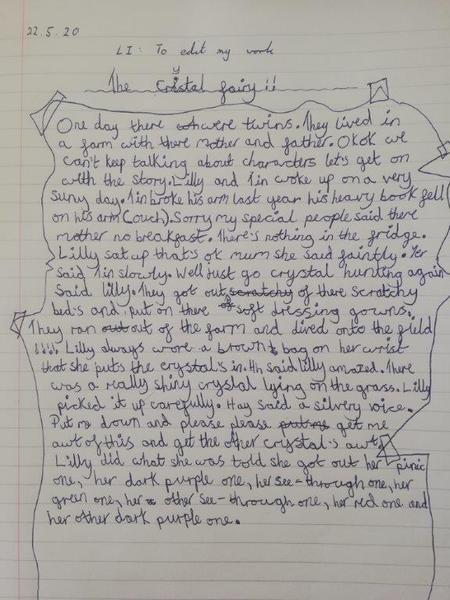 22.5.20
LI: To edit my work
The Crystal fairy !!
One day there were twins. They lived in
a farm with there mother and father. Ok ok we
can't keep talking about characters let's get on
with the story. Lilly and Jin woke up on a very
suny day. Jin broke his arm last year his heavy book fell
on his arm (Ouch). Sorry my special people said there
mother no breakfast. There's nothing in the fridge.
Lilly sat up that's ok mum she said faintly. Yer
said Jin slowly. Well just go crystal hunting again
said lilly. They got out scratchy of there scratchy
bed's and put on there soft dressing gowns.
They ran out out of the farm and dired onto the field
!!!! Lilly always wore a brown bag on her wrist
that she puts the crystal's in. Ah said lilly amazed. There
was a really shiny crystal lying on the grass. Lilly
picked it up carefully. Hay said a silvery voice.
Put me down and please please get me
awt of this and get the other crystal's awt.
Lilly did what she was told she got out her pinic
one, her dark purple one, her see-through one, her
gren one, her other see-through one, her red one and
her other dark purple one.